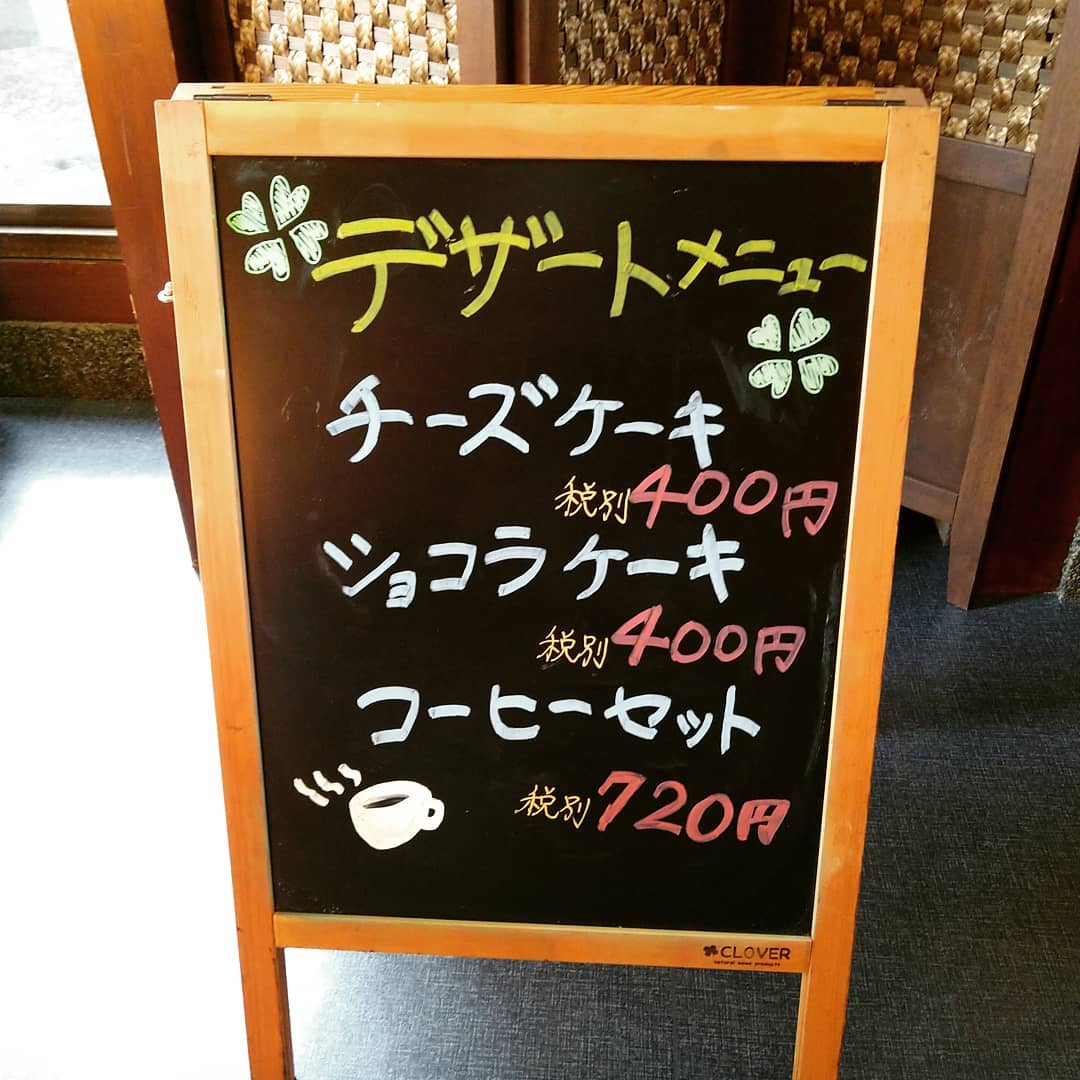 デザートメニュー
チーズケーキ
税別400円
ショコラケーキ
税別400円
コーヒーセット
税別720円
CLOVER
natural wood products